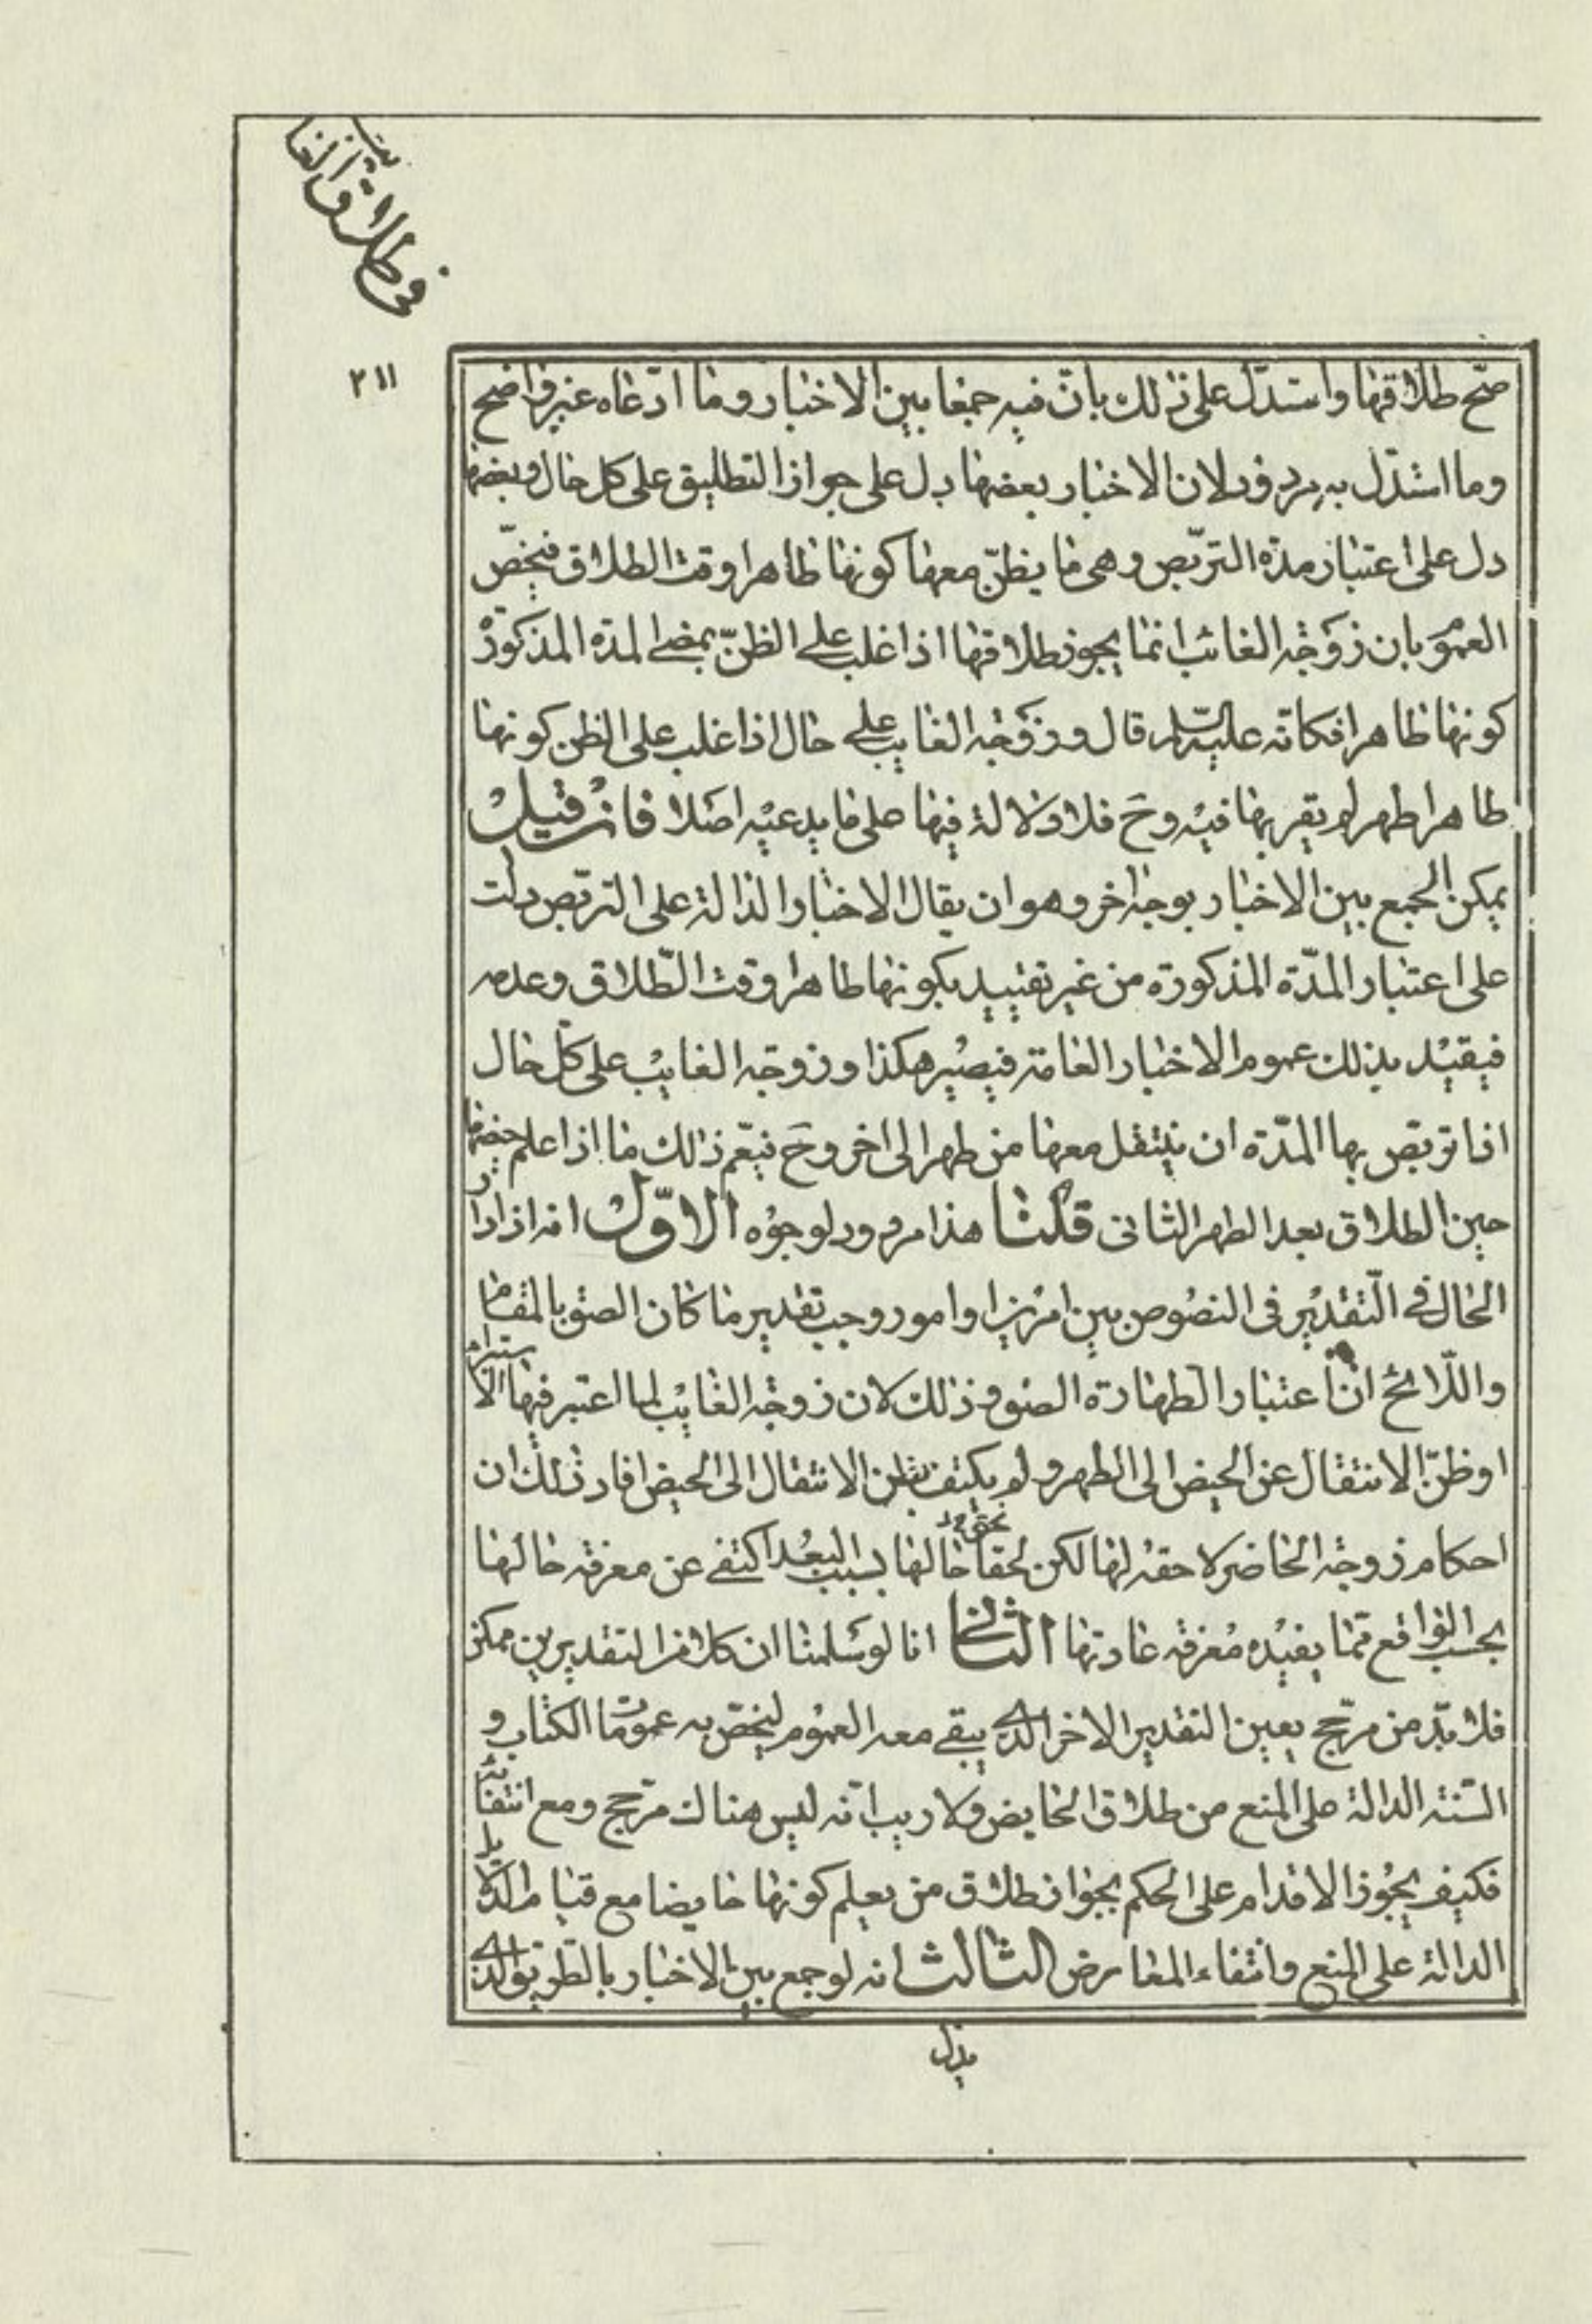 في طلاق الغائب
٢١١
صحّ طلاقها واستدلّ على ذلك بانّ فيه جمعا بين الاخبار وما ادّعاه غير واضح
وما استدلّ به مردود لان الاخبار بعضها دل على جواز التطليق على كل حال وبعضها
دل على اعتبار مدة التربّص وهى ما يظنّ معها كونها طاهرا وقت الطلاق فيخصّ
العموم بان زوجة الغائب انما يجوز طلاقها اذا غلب على الظنّ بمضى المدة المذكورة
كونها طاهرا فكانّه عليه السلام قال وزوجة الغايب على حال اذا غلب على الظن كونها
طاهرا طهر لم يقربها فيه وح فلا دلالة فيها على ما يدعيه اصلا فان قيل
يمكن الجمع بين الاخبار بوجه اخر وهو ان يقال الاخبار الدالة على التربّص دلت
على اعتبار المدّة المذكورة من غير تقييد بكونها طاهرا وقت الطّلاق وعدمه
فيقيد بذلك عموم الاخبار العامة فيصير هكذا وزوجة الغايب على كل حال
اذا تربّص بها المدّة ان ينتقل معها من طهر الى اخر وح فيعّم ذلك ما اذا علم حيضها
حين الطلاق بعد الطهر الثانى قلنا هذا مردود لوجوه الاوّل انه اذا دار
الحال فى التّقدير فى النصوص بين امرين او امور وجب تقدير ما كان الصق بالمقام
واللّائح انّ اعتبار الطهارة الصق وذلك لان زوجة الغايب لما اعتبر فيها الاستبراء
او ظنّ الانتقال عن الحيض الى الطهر ولم يكتف بظن الانتقال الى الحيض افاد ذلك ان
احكام زوجة الحاضر لاحقة لها لكن لخفاء تحقق حالها بسبب البعد اكتفى عن معرفة حالها
بحسب الواقع بما يفيده معرفة عادتها الثانى انا لو سلمنا ان كلا من التقديرين ممكن
فلا بدّ من مرجّح يعين التقدير الاخر الذى يبقى معه العموم ليخصّ به عمومات الكتاب و
السّنة الدالة على المنع من طلاق الحايض ولا ريب انّه ليس هناك مرجّح ومع انتفائه
فكيف يجوز الاقدام على الحكم بجواز طلاق من يعلم كونها حايضا مع قيام الدّلايل
الدالة على المنع وانتفاء المعارض الثالث انه لو جمع بين الاخبار بالطّريق الذى
يدل